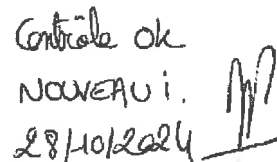 Contrôle ok
NOUVEAU i.
28/10/2024